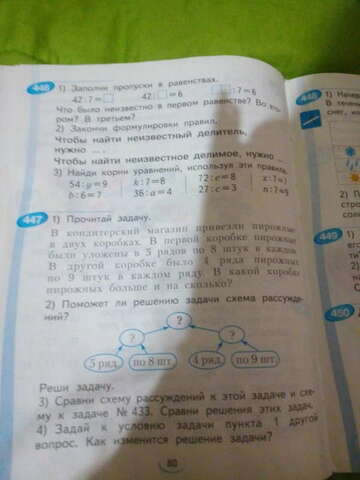 446 1) Заполни пропуски в равенствах.
42:7=□ 42:□=6 □:7=6
Что было неизвестно в первом равенстве? Во вто-
ром? В третьем?
2) Закончи формулировки правил.
Чтобы найти неизвестный делитель,
нужно ... .
Чтобы найти неизвестное делимое, нужно ...
3) Найди корни уравнений, используя эти правила.
54:y=9 k:7=8 72:c=8
b:6=7 36:a=4 27:c=3
447 1) Прочитай задачу.
В кондитерский магазин привезли пирожные
в двух коробках. В первой коробке пирожные
были уложены в 5 рядов по 8 штук в каждом.
В другой коробке было 4 ряда пирожных
по 9 штук в каждом ряду. В какой коробке
пирожных больше и на сколько?
2) Поможет ли решению задачи схема рассужде-
ний?
?
? ?
5 ряд. по 8 шт. 4 ряд. по 9 шт.
Реши задачу.
3) Сравни схему рассуждений к этой задаче и схе-
му к задаче № 433. Сравни решения этих задач.
4) Задай к условию задачи пункта 1 другой
вопрос. Как изменится решение задачи?
80
448 1)
В тече
снег,
2)
449 1)
450